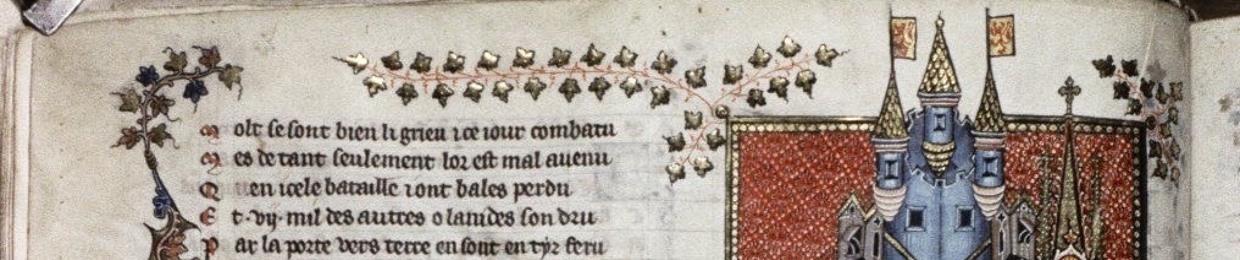 Molt se sont bien li grieu ice iour combatu
Mes de tant seulement lor est mal auenu
Quen icele bataille i ont bales perdu
Et .vij. mil des autres o lamdes son dru
Par la porte vers terre en sont en tyr feru